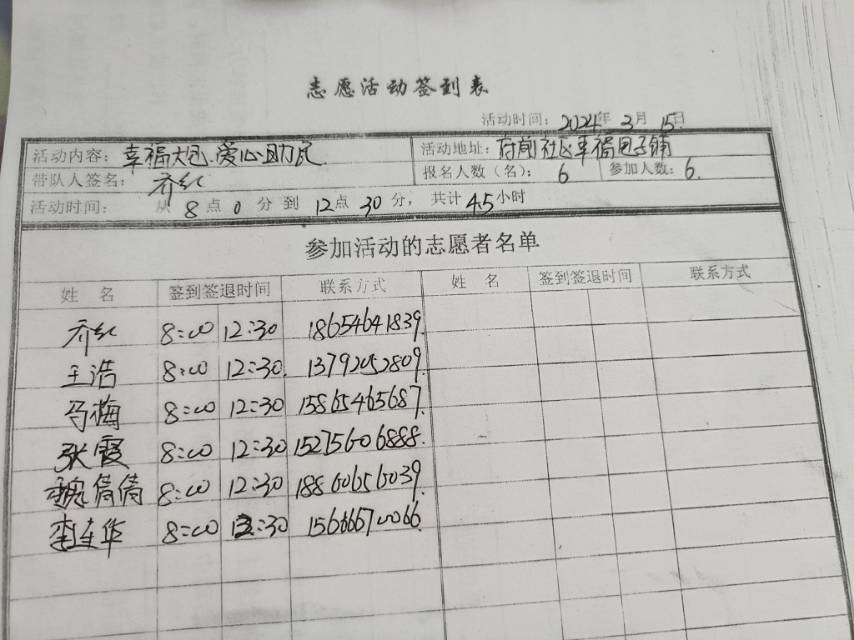 志愿活动签到表
活动时间：2024年3月15日
活动内容：幸福大包.爱心助民 活动地址：府前社区幸福包子铺
带队人签名：乔红 报名人数（名）：6 参加人数：6.
活动时间： 从 8 点 0 分到 12点 30 分，共计 4.5小时
参加活动的志愿者名单
姓 名 签到签退时间 联系方式 姓 名 签到签退时间 联系方式
乔红 8:00 12:30 18654641839.
王浩 8:00 12:30. 13792052809.
马梅 8:00 12:30 15865465687.
张霞 8:00 12:30 15275606888.
魏倩倩 8:00 12:30 18860656039.
8:00 12:30 15666570066.